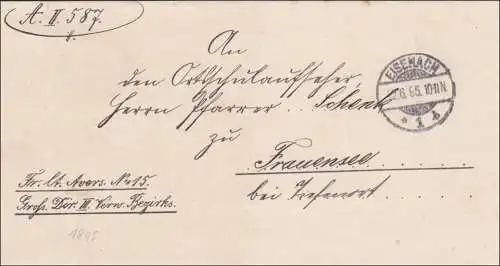 A. II. 587.
An
den Ortsschulaufseher,
Herrn Pfarrer . . Schenk
zu
Frauensee . . . . . .
bei Tiefenort . . . .
EISENACH
6.95. 10-11N.
* 1 b
fr. lt. Avers. No 15.
Großh. Dir. III. Verw. Bezirks.
1895